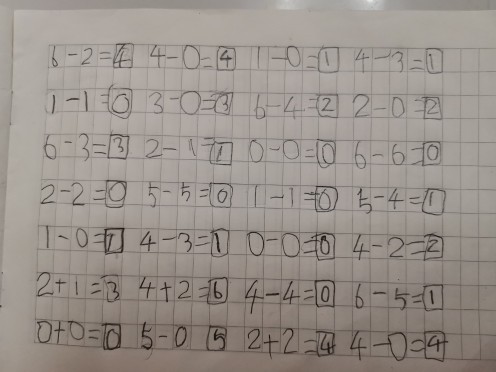 6-2=4 4-0=4 1-0=1 4-3=1
1-1=0 3-0=3 6-4=2 2-0=2
6-3=3 2-1=1 0-0=0 6-6=0
2-2=0 5-5=0 1-1=0 5-4=1
1-0=1 4-3=1 0-0=0 4-2=2
2+1=3 4+2=6 4-4=0 6-5=1
0+0=0 5-0 5 2+2=4 4-0=4